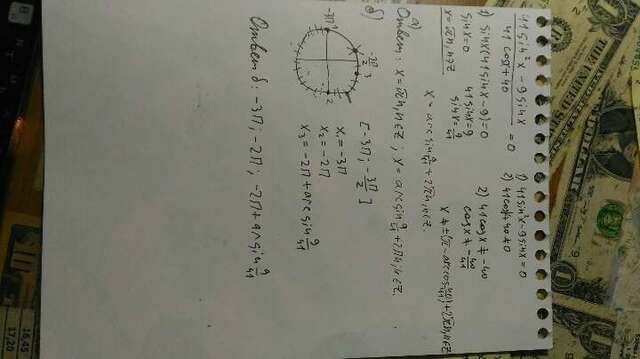 41 sin²x - 9 sin x / 41 cosx + 40 = 0
1) 41 sin²x - 9 sin x = 0
2) 41 cosx + 40 ≠ 0
1) sinx(41 sinx - 9) = 0
sinx = 0
41 sinx = 9
sinx = 9/41
x = πn, n∈Z
x = arcsin 9/41 + 2πn, n∈Z.
2) 41 cosx ≠ -40
cosx ≠ -40/41
x ≠ ±(π - arccos 40/41) + 2πn, n∈Z
а)
Ответ: x = πn, n∈Z; x = arcsin 9/41 + 2πn, n∈Z.
б)
[-3π; -3π/2]
-3π
-3π/2
x₁ = -3π
x₂ = -2π
x₃ = -2π + arcsin 9/41
Ответ б: -3π; -2π; -2π + arcsin 9/41
16:45
17:20